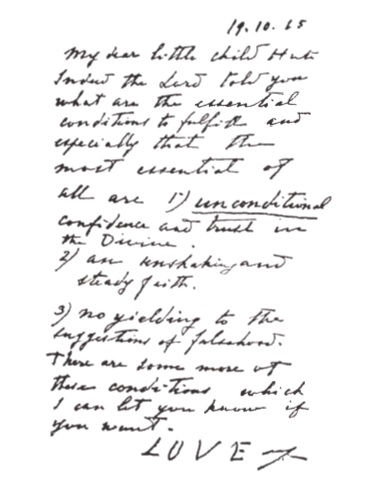 19.10.65
My dear little child Huta
Indeed the Lord told you
what are the essential
conditions to fulfil and
especially that the
most essential of
all are 1) unconditional
confidence and trust in
the Divine.
2) an unshaking and
steady faith.
3) no yielding to the
suggestions of falsehood.
There are some more of
these conditions which
I can let you know if
you want.
LOVE